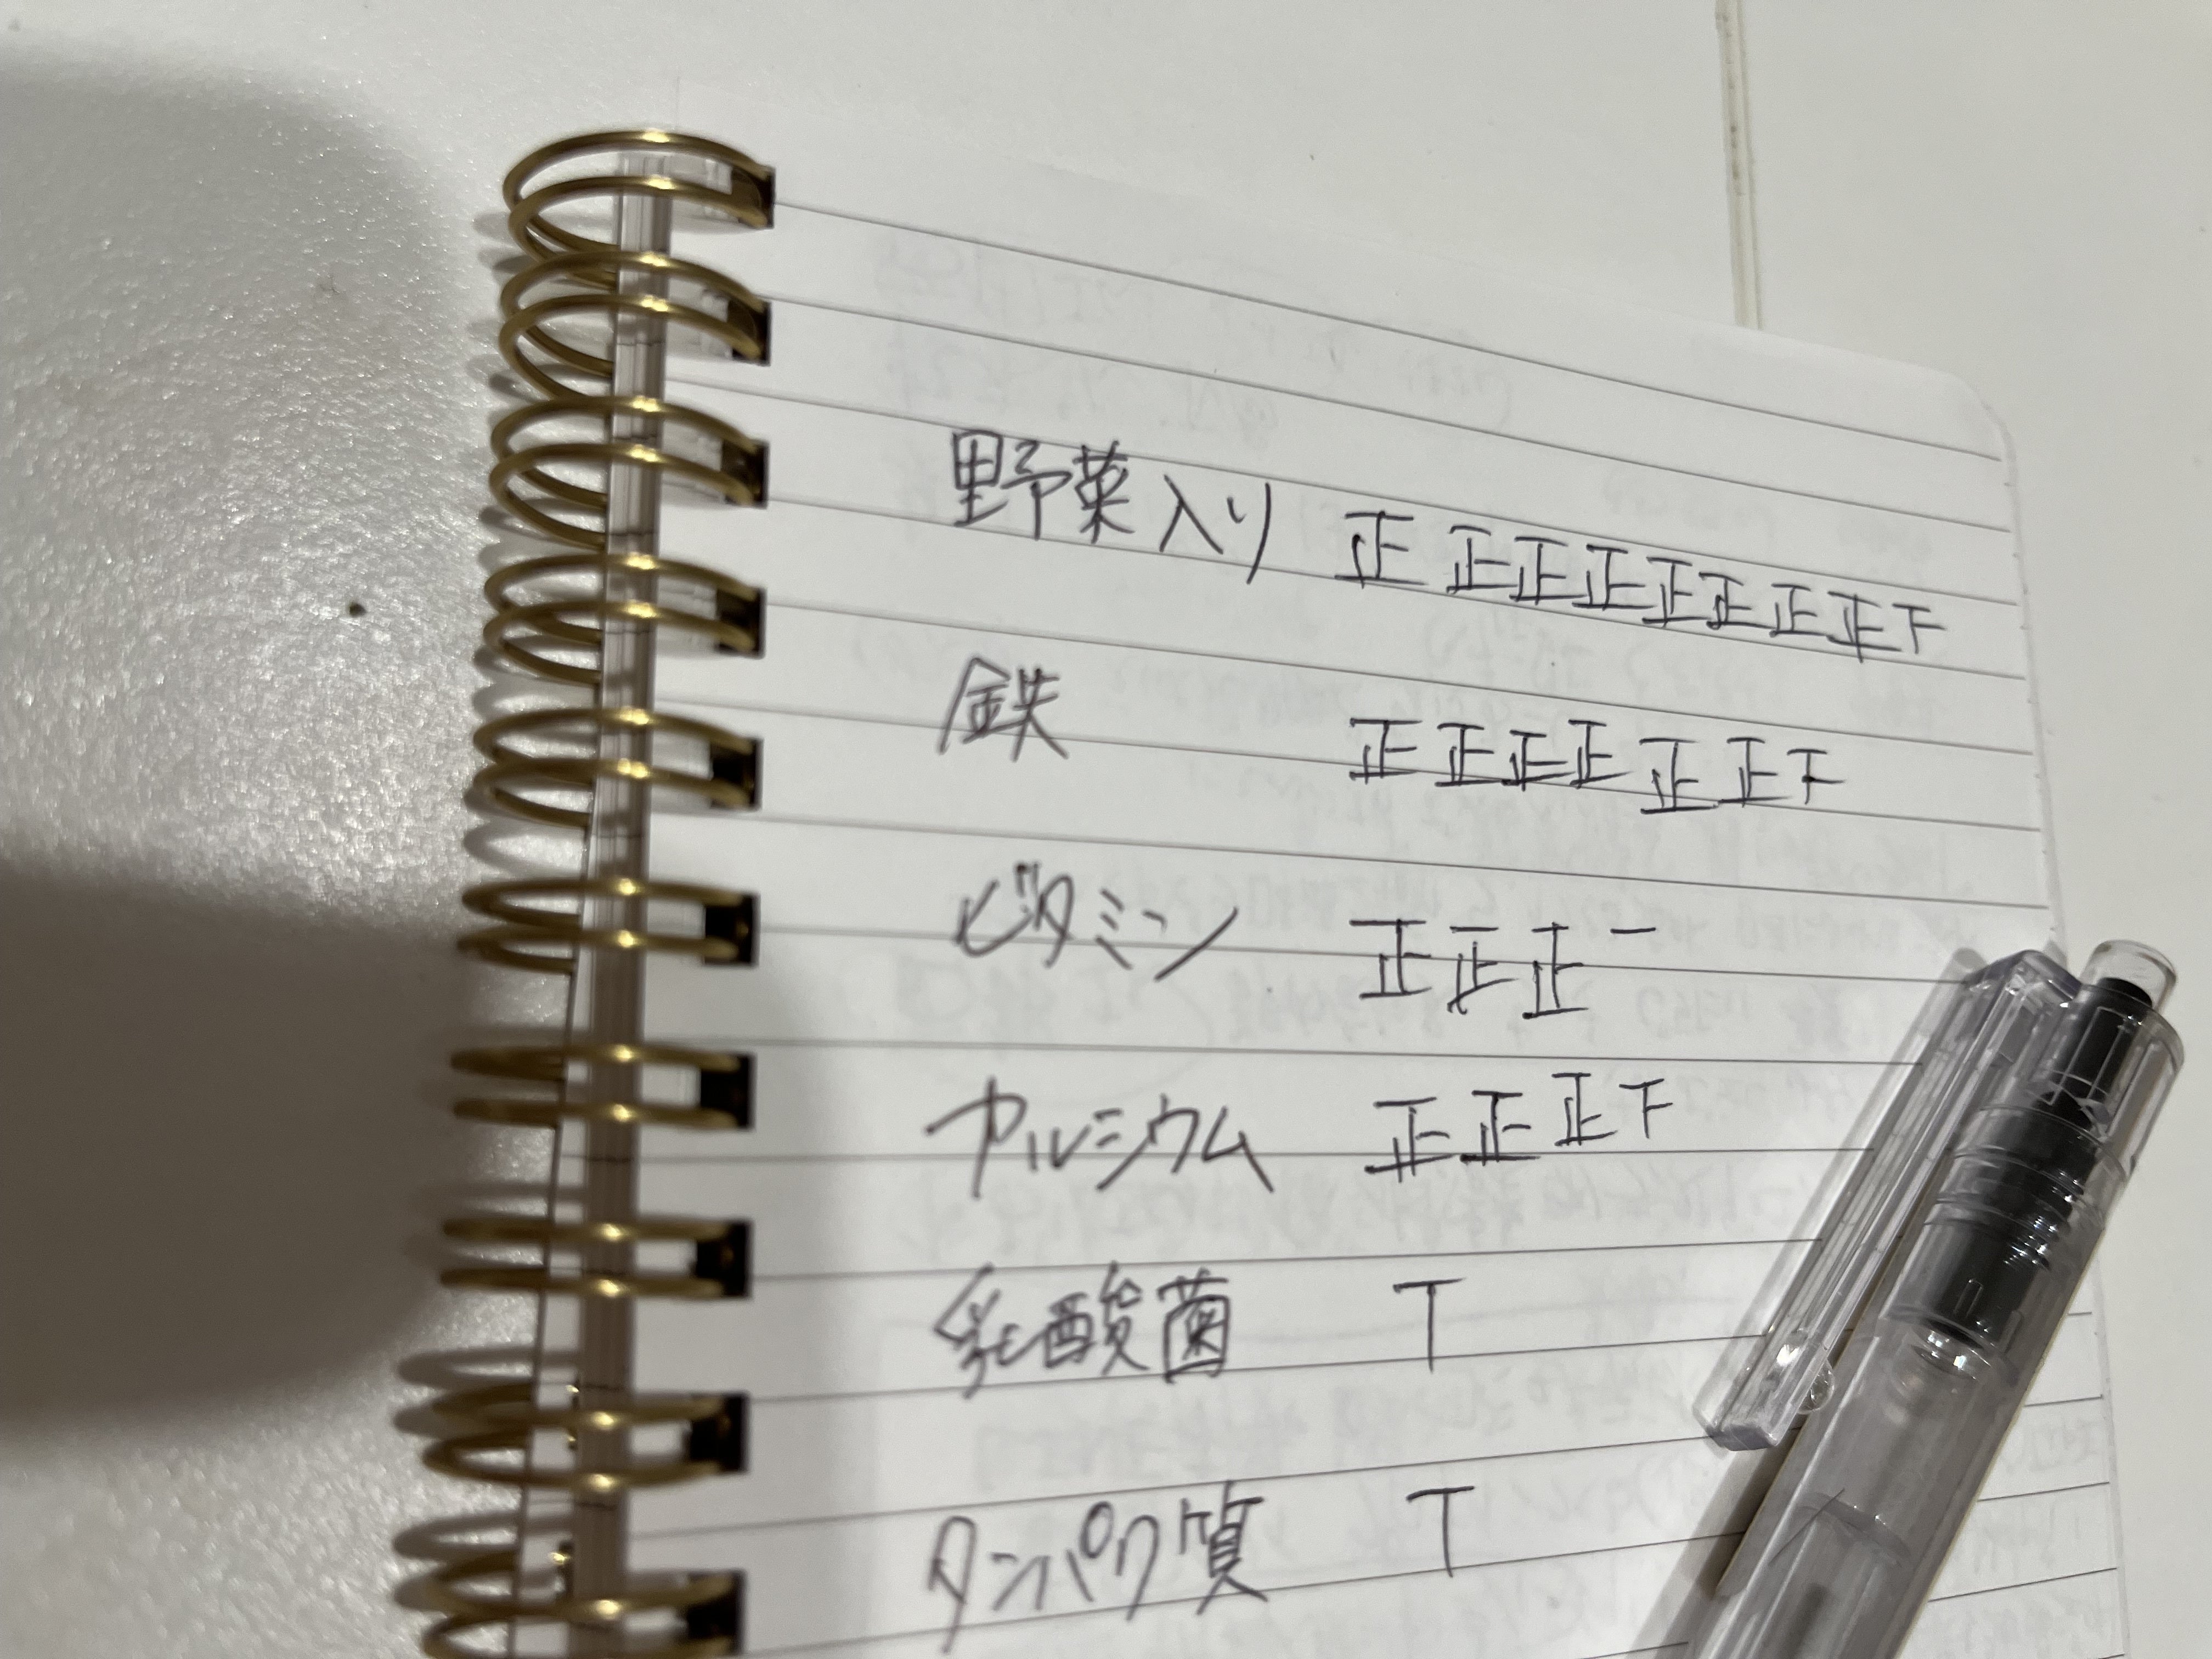 野菜入り 正正正正正正正正下
鉄 正正正正正正下
ビタミン 正正正一
カルシウム 正正正下
乳酸菌 T
タンパク質 T